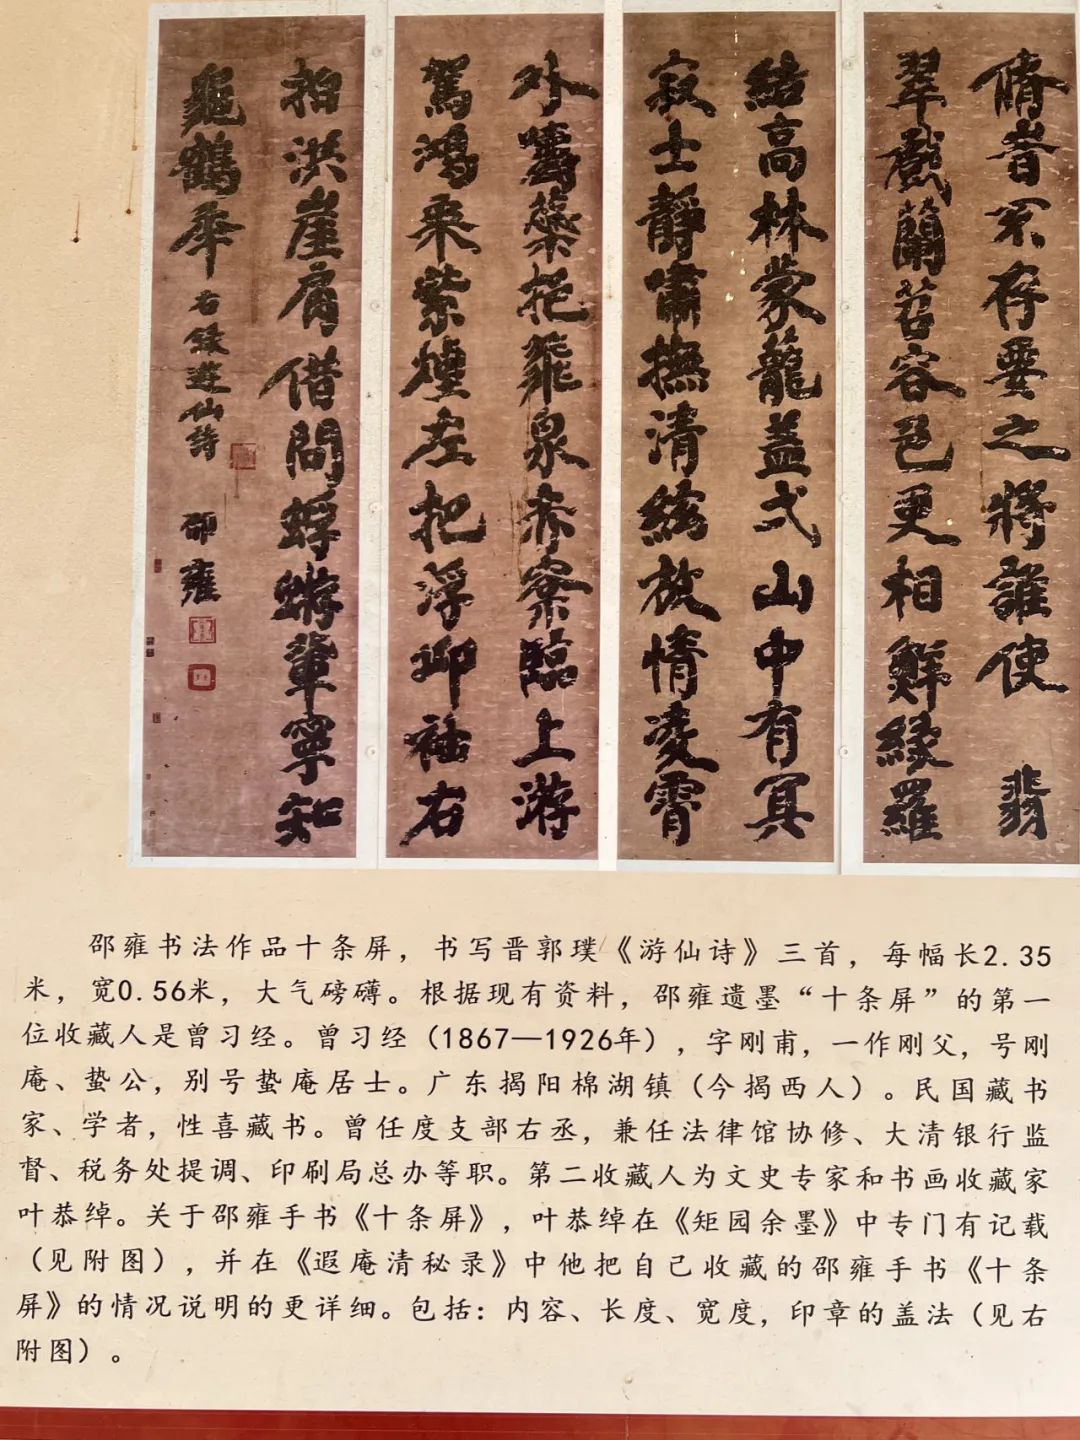 脩旹不存要之將誰使 翡
翠戲蘭苕容色更相鮮緑羅
結高林蒙籠盖弌山中有冥
寂士靜嘯撫清絃放情凌霄
外嚼蘂挹飛泉赤松臨上游
駕鴻乘紫煙左把浮邱袖右
拍洪崖肩借問蜉蝣輩寧知
龜鶴年 右錄遊仙詩 邵雍
邵雍书法作品十条屏，书写晋郭璞《游仙诗》三首，每幅长2.35
米，宽0.56米，大气磅礴。根据现有资料，邵雍遗墨“十条屏”的第一
位收藏人是曾习经。曾习经（1867—1926年），字刚甫，一作刚父，号刚
庵、蛰公，别号蛰庵居士。广东揭阳棉湖镇（今揭西人）。民国藏书
家、学者，性喜藏书。曾任度支部右丞，兼任法律馆协修、大清银行监
督、税务处提调、印刷局总办等职。第二收藏人为文史专家和书画收藏家
叶恭绰。关于邵雍手书《十条屏》，叶恭绰在《矩园余墨》中专门有记载
（见附图），并在《遐庵清秘录》中他把自己收藏的邵雍手书《十条
屏》的情况说明的更详细。包括：内容、长度、宽度，印章的盖法（见右
附图）。